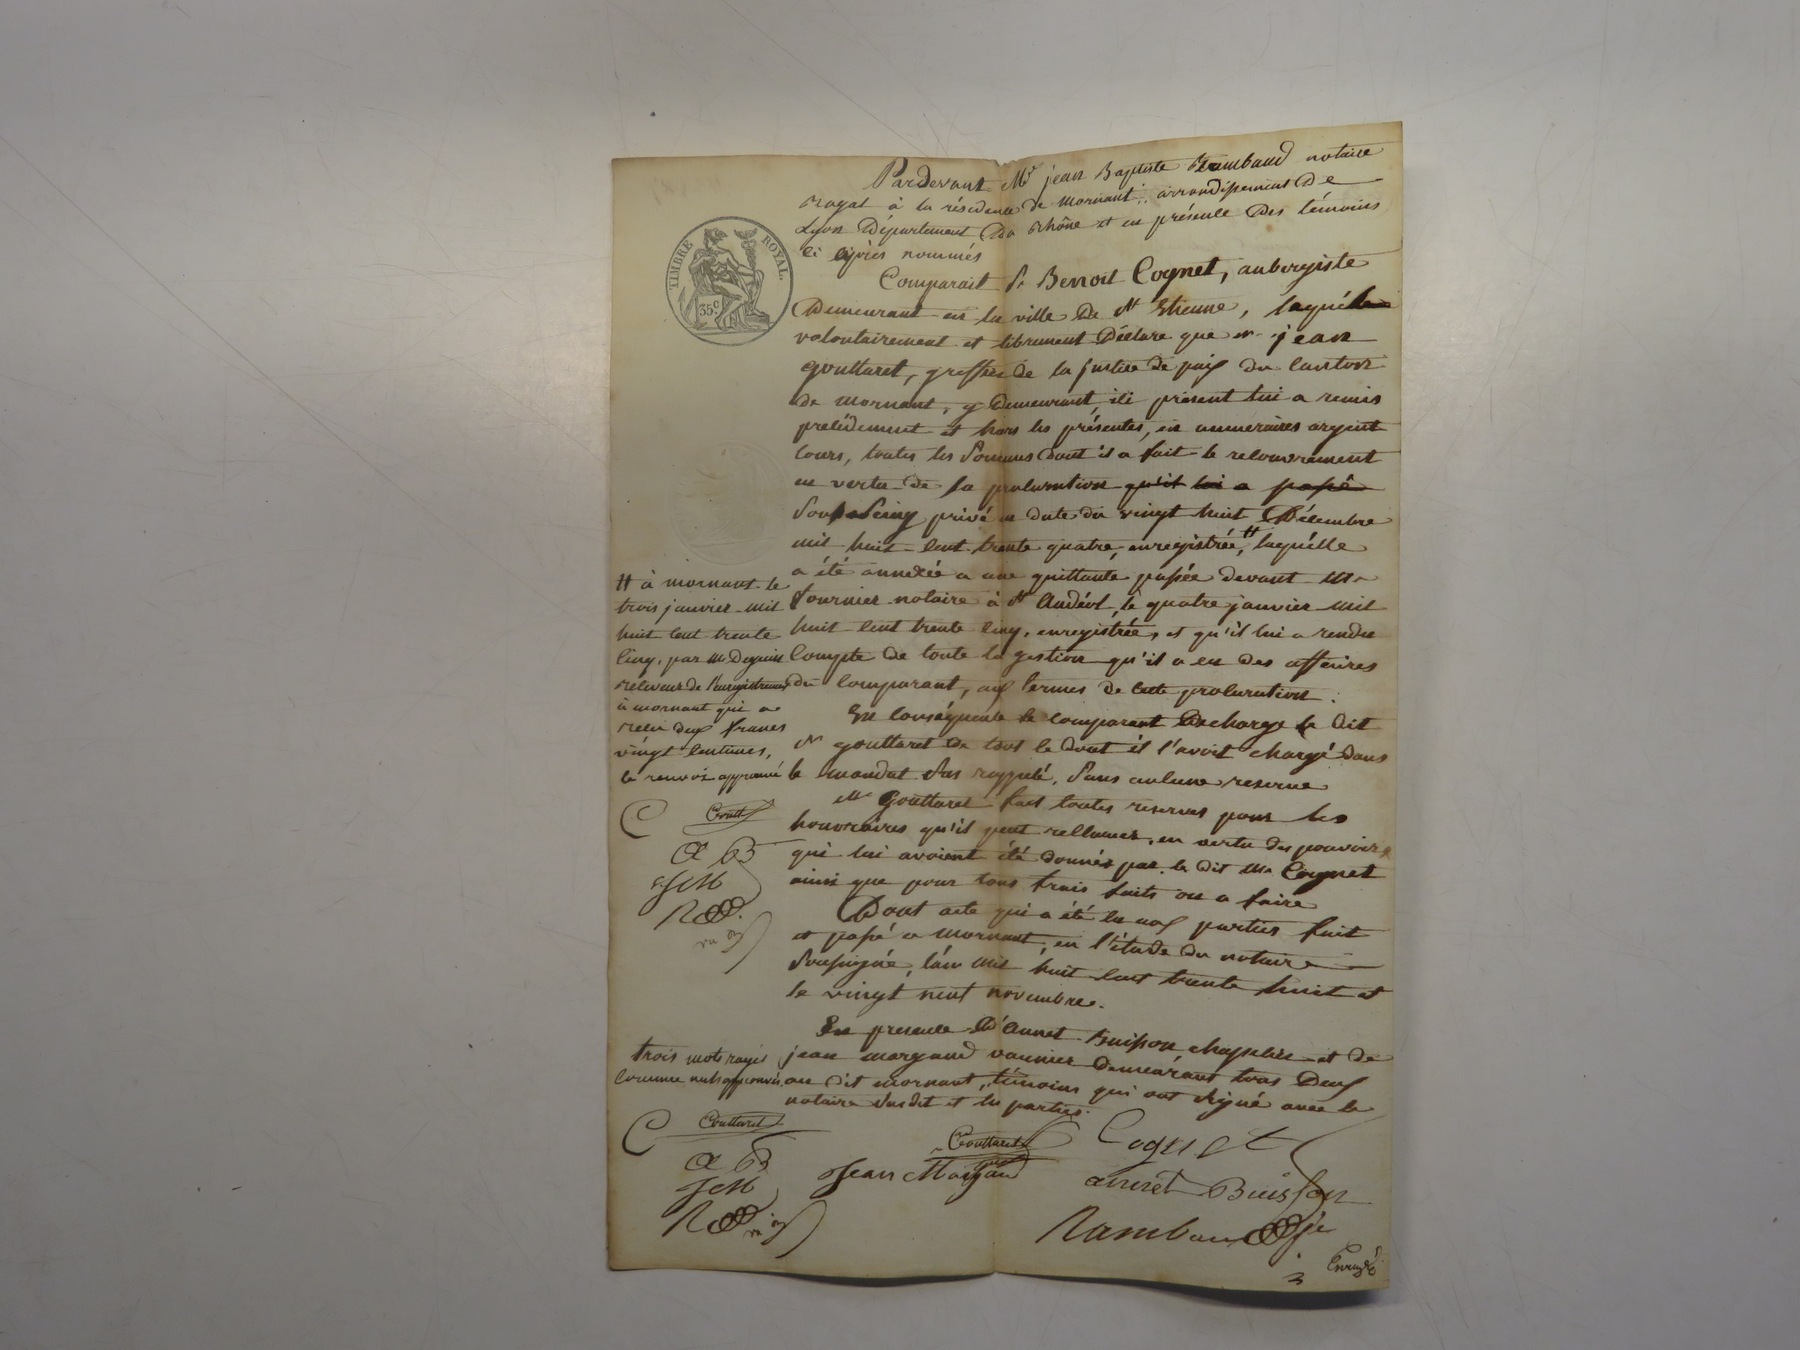 Pardevant Me jean Baptiste Rambaud notaire
royal à la résidence de mornant, arrondissement de
Lyon Département du Rhône et en présence des témoins
ci après nommés
TIMBRE ROYAL.
35 c.
Comparait Sr Benoit Cognet, aubergiste
Demeurant en la ville de St Etienne, laquelle
volontairement et librement Déclare que mr jean
gouttaret, greffier de la justice de paix du Canton
de mornant, y demeurant, ici présent lui a remis
précédemment et hors les présentes, en numéraires argent
Cours, toutes les Sommes dont il a fait le recouvrement
en vertu de la procuration qu'il lui a passé
Sous Seing privé en date du vingt huit Décembre
mil huit cent trente quatre, enregistrée, # laquelle
a été annexée a une quittance passée devant Me
fournier notaire à St Andéol, le quatre janvier mil
huit cent trente cinq, enregistrée, et qu'il lui a rendu
Compte de toute la gestion qu'il a eu des affaires
du Comparant, aux termes de cette procuration.
En Conséquence le comparant Décharge le dit
Mr gouttaret de tout ce dont il l'avoit chargé dans
le mandat sus rappelé, Sans aucune reserve
Mr Gouttaret fait toutes reserves pour les
honoraires qu'il peut reclamer, en vertu des pouvoirs
qui lui avoient été donnés par le dit Mr Cognet
ainsi que pour tous frais faits ou a faire
Dont acte qui a été lu aux parties fait
et passé a mornant, en l'étude du notaire
Soussigné, l'an mil huit cent trente huit et
le vingt neuf novembre.
En presence D'annet Buisson chapelier et de
jean margand vannier demeurant tous Deux
au dit mornant, témoins qui ont Signé avec le
notaire Susdit et les parties.
# à mornant le
trois janvier mil
huit cent trente
cinq, par Mr Deguin
receveur de l'enregistrement
à mornant qui a
recu deux francs
vingt centimes,
le renvoi approuvé
C Goutt
a B
JM
R
trois mots rayés
Comme nuls approuvés
C Gouttaret
a B
JM
R
Gouttaret Cognet
Jean Margand annet Buisson
Rambaud